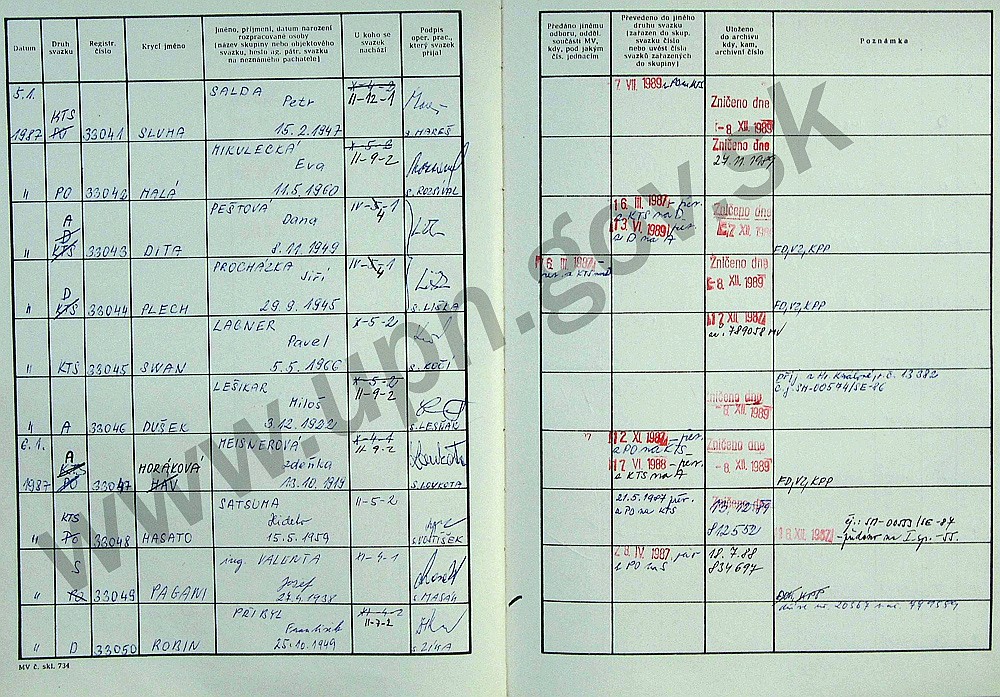 Datum
Druh svazku
Registr. číslo
Krycí jméno
Jméno, příjmení, datum narození
rozpracované osoby
(název skupiny nebo objektového
svazku, heslo ag. pátr. svazku
na neznámého pachatele)
U koho se
svazek
nachází
Podpis
oper. prac.,
který svazek
přijal
Předáno jinému
odboru, odděl.
součásti MV,
kdy, pod jakým
čís. jednacím
Převedeno do jiného
druhu svazku
(zařazen do skup.
svazku číslo
nebo uvést číslo
svazků zařazených
do skupiny)
Uloženo
do archivu
kdy, kam,
archivní číslo
Poznámka
5.1.
1987 KTS PO 33041 SLUHA
ŠALDA
Petr
15.2.1947
X-4-2
II-12-1
s. MAREŠ
7. VII. 1989 z PO na KTS
Zničeno dne
-8. XII. 1989
" PO 33042 MALÁ
MIKULECKÁ
Eva
11.5.1960
X-5-6
II-9-2
s. ROZMÍVAL
Zničeno dne
27.11.1989
" A D KTS 33043 DITA
PEŠTOVÁ
Dana
8.11.1949
IV-5-1
4
16. III. 1987 - přev.
z KTS na D
13. VI. 1989 přev.
z D na A
Zničeno dne
XII. 1989
FD,VZ,KPP
" D KTS 33044 PLECH
PROCHÁZKA
Jiří
29.9.1945
IV-5-1
4
s. LIŠKA
16. III. 1987 -
přev. z KTS na D
Zničeno dne
-8. XII. 1989
FD,VZ,KPP
" KTS 33045 SWAN
LAGNER
Pavel
5.5.1966
X-5-2
s. KOČÍ
XII. 1987
a.č. 789058 MV
" A 33046 DUŠEK
LEŠIKAR
Miloš
3.12.1922
X-5-2
II-9-2
s. LESŇÁK
Zničeno dne
-8. XII. 1989
č.j. SM-00574/SE-86
6.1.
1987 A KTS PO 33047 HORÁKOVÁ
HAV
MEISNEROVÁ
Zdeňka
13.10.1919
X-4-1
II-9-2
s. LOUKOTA
12. XI. 1987 - přev.
z PO na KTS
17. VI. 1988 - přev.
z KTS na A
Zničeno dne
-8. XII. 1989
FD,VZ,KPP
" KTS PO 33048 HASATO
SATSUMA
Hideto
15.5.1959
II-5-2
s. VOTÍŠEK
21.5.1987 přev.
z PO na KTS
Zničeno dne
13.12.89
812552
18. XII. 1987
čj.: SM-00553/SE-87
" S PO 33049 PAGANI
ing. VALENTA
Josef
27.4.1938
XI-4-1
s. MASÁK
28. IV. 1987 přev.
z PO na S
18.7.88
834697
" D 33050 ROBIN
PŘIBYL
František
25.10.1949
XI-4-2
II-7-2
s. ZÍKA
MV č. skl. 734
www.upn.gov.sk